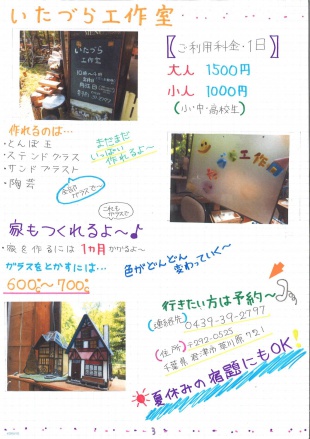 いたづら工作室
【ご利用料金・1日】
大人 1500円
小人 1000円
(小・中・高校生)
いたづら
工作室
作れるのは…
・とんぼ玉
・ステンドグラス
・サンドブラスト
・陶芸
まだまだ
いっぱい
作れるよ~
全部
ガラスで~
これも
ガラスで
家もつくれるよ~♪
・家を作るには1カ月かかるよ~
ガラスをとかすには…
600℃~700℃
色がどんどん
変わっていく~
行きたい方は予約~
(連絡先)
0439-39-2797
(住所)〒292-0525
千葉県君津市草川原721
夏休みの宿題にもOK!
3